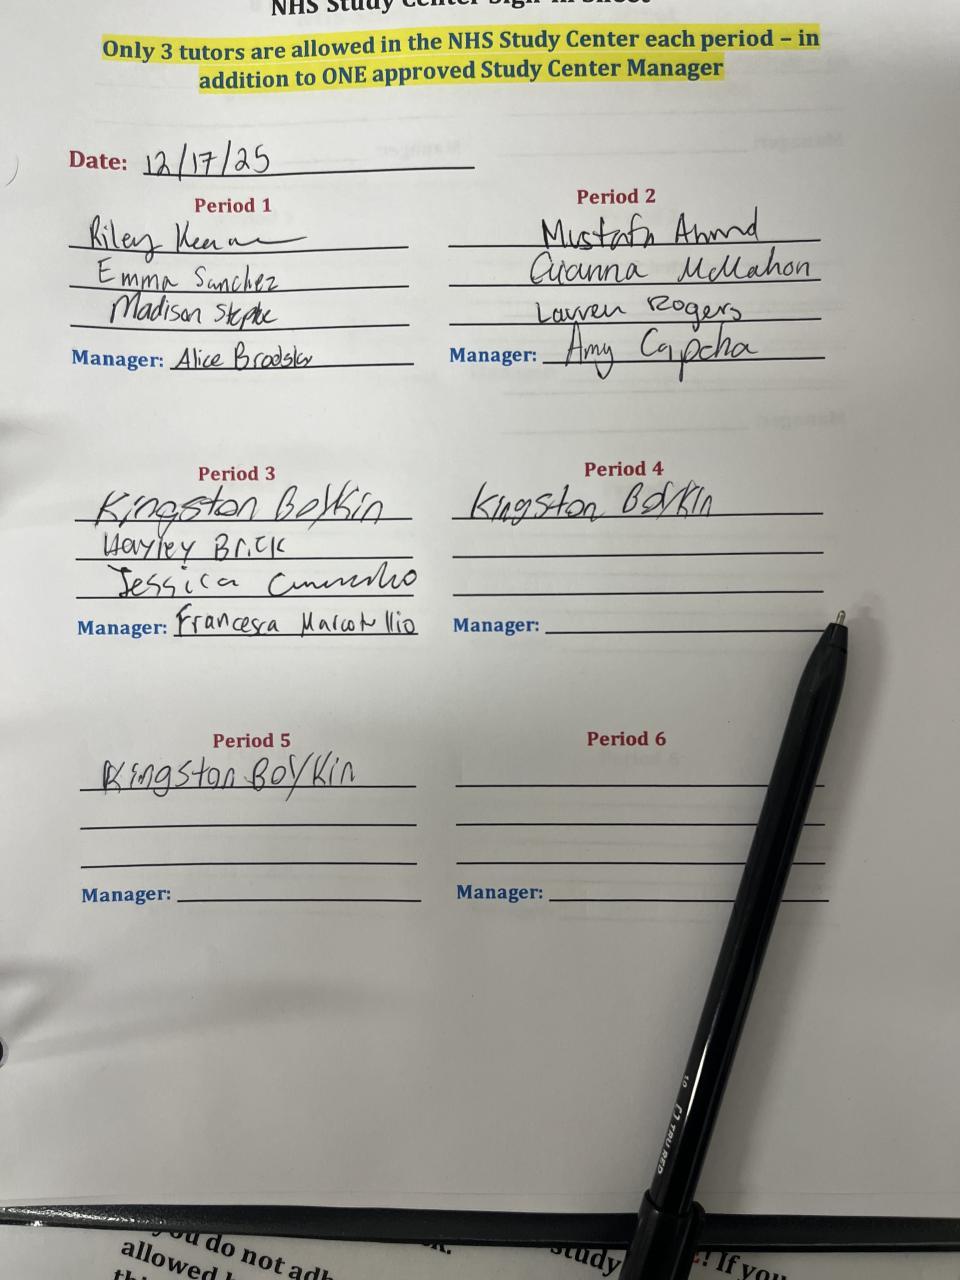 NHS Study Center Sign-in Sheet
Only 3 tutors are allowed in the NHS Study Center each period – in
addition to ONE approved Study Center Manager
Date: 12/17/25
Period 1
Riley
Emma Sanchez
Madison
Manager: Alice
Period 2
Mustafa Ahmad
McMahon
Lauren Rogers
Manager: Amy Capcha
Period 3
Kingston Boykin
Hayley Brick
Jessica
Manager: Francesca
Period 4
Kingston Boykin
Manager:
Period 5
Kingston Boykin
Manager:
Period 6
Manager:
10 TRU RED
you do not
study ! If you
allowed